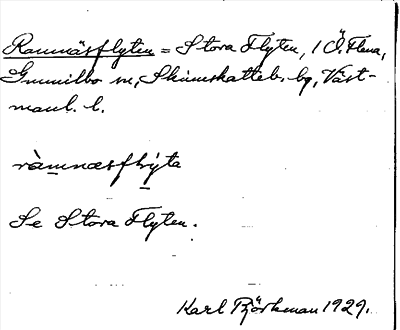 Ramnäsflyten = Stora Flyten, i Ö. Flena,
Gunnilbo sn, Skinnskatteb. bg, Väst-
manl. l.
ràmnæsflýta
Se Stora Flyten.
Karl Björkman 1929.